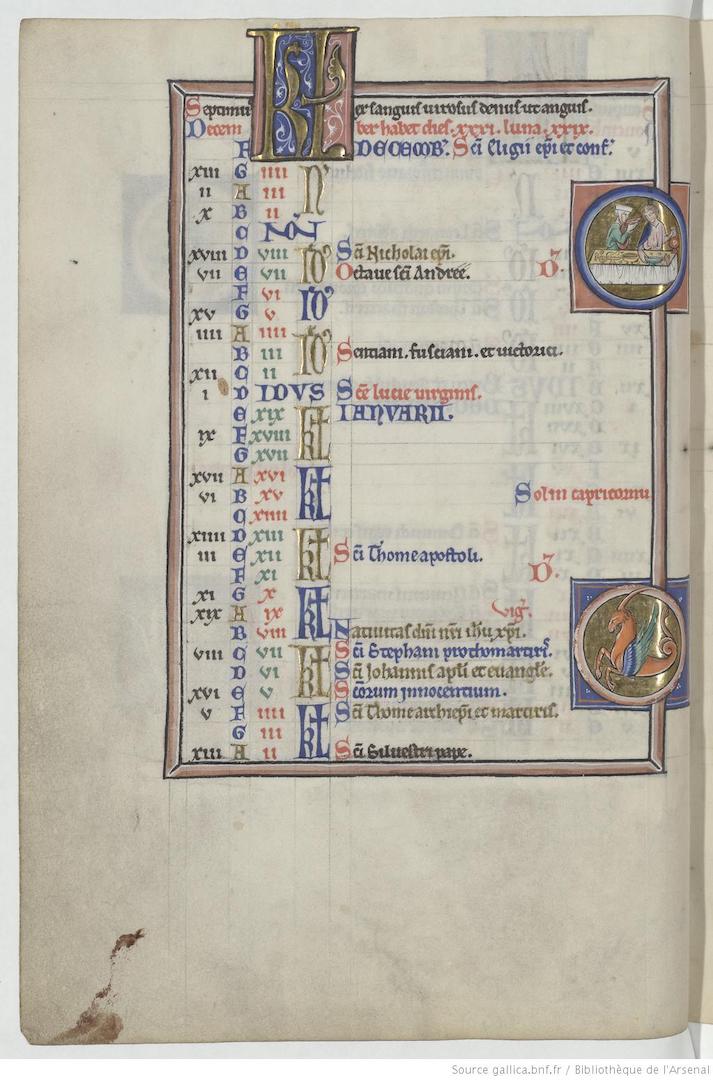 Septimus KL ex sanguis uirosus denus ut anguis.
Decem ber habet dies .xxxi. luna .xxix.
F DECEMBR. Sci Eligii epi et conf.
xiii G iiii N
ii A iii
x B ii
C NON
xviii D viii ID Sci Nicholai epi.
vii E vii Octaue sci Andree. D.
F vi ID
xv G v
iiii A iiii ID
B iii Sentiani. fusciani. et uictorici.
xii C ii
i D IDVS Sce lucie uirginis.
E xix kł IANVARII.
ix F xviii
G xvii
xvii A xvi kł
vi B xv Sol in capricornu
C xiiii
xiiii D xiii kł
iii E xii Sci Thome apostoli.
F xi D.
xi G x kł
xix A ix Vig.
B viii Natiuitas dni nri ihu xpi.
viii C vii kł Sci Stephani prothomartiris.
D vi Sci Johannis apli et euangle.
xvi E v Scorum innocentium.
v F iiii kł Sci Thome archiepi et martiris.
G iii
xiii A ii Sci Siluestri pape.
Source gallica.bnf.fr / Bibliothèque de l'Arsenal